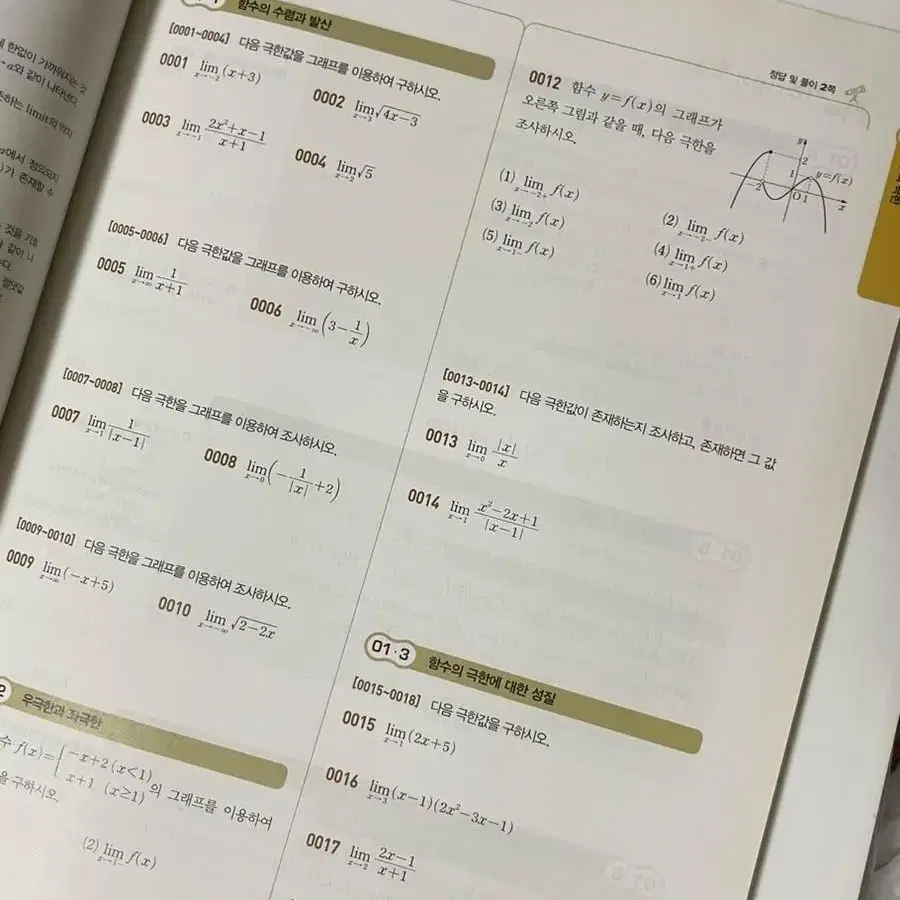 에 한없이 가까워지는 것
→α와 같이 나타낸다.
하는 limit의 약자
α에서 정의되지
가 존재할 수
것을 기호
같이 나
함수의 수렴과 발산
[0001~0004] 다음 극한값을 그래프를 이용하여 구하시오.
0001 lim x→-2 (x+3)
0002 lim x→3 √4x-3
0003 lim x→-1 2x²+x-1 / x+1
0004 lim x→2 √5
[0005~0006] 다음 극한값을 그래프를 이용하여 구하시오.
0005 lim x→∞ 1 / x+1
0006 lim x→-∞ (3- 1/x)
[0007~0008] 다음 극한을 그래프를 이용하여 조사하시오.
0007 lim x→1 1 / |x-1|
0008 lim x→0 (- 1/|x| +2)
[0009~0010] 다음 극한을 그래프를 이용하여 조사하시오.
0009 lim x→∞ (-x+5)
0010 lim x→-∞ √2-2x
우극한과 좌극한
수 f(x)={ -x+2 (x<1)
x+1 (x≥1) 의 그래프를 이용하여
을 구하시오.
(2) lim f(x)
정답 및 풀이 2쪽
0012 함수 y=f(x)의 그래프가
오른쪽 그림과 같을 때, 다음 극한을
조사하시오.
y
2
1
y=f(x)
-2
O
1
x
(1) lim x→-2+ f(x)
(2) lim x→-2- f(x)
(3) lim x→-2 f(x)
(4) lim x→1+ f(x)
(5) lim x→1- f(x)
(6) lim x→1 f(x)
[0013~0014] 다음 극한값이 존재하는지 조사하고, 존재하면 그 값
을 구하시오.
0013 lim x→0 |x| / x
0014 lim x→1 x²-2x+1 / |x-1|
01·3 함수의 극한에 대한 성질
[0015~0018] 다음 극한값을 구하시오.
0015 lim x→1 (2x+5)
0016 lim x→3 (x-1)(2x²-3x-1)
0017 lim x→2 2x-1 / x+1